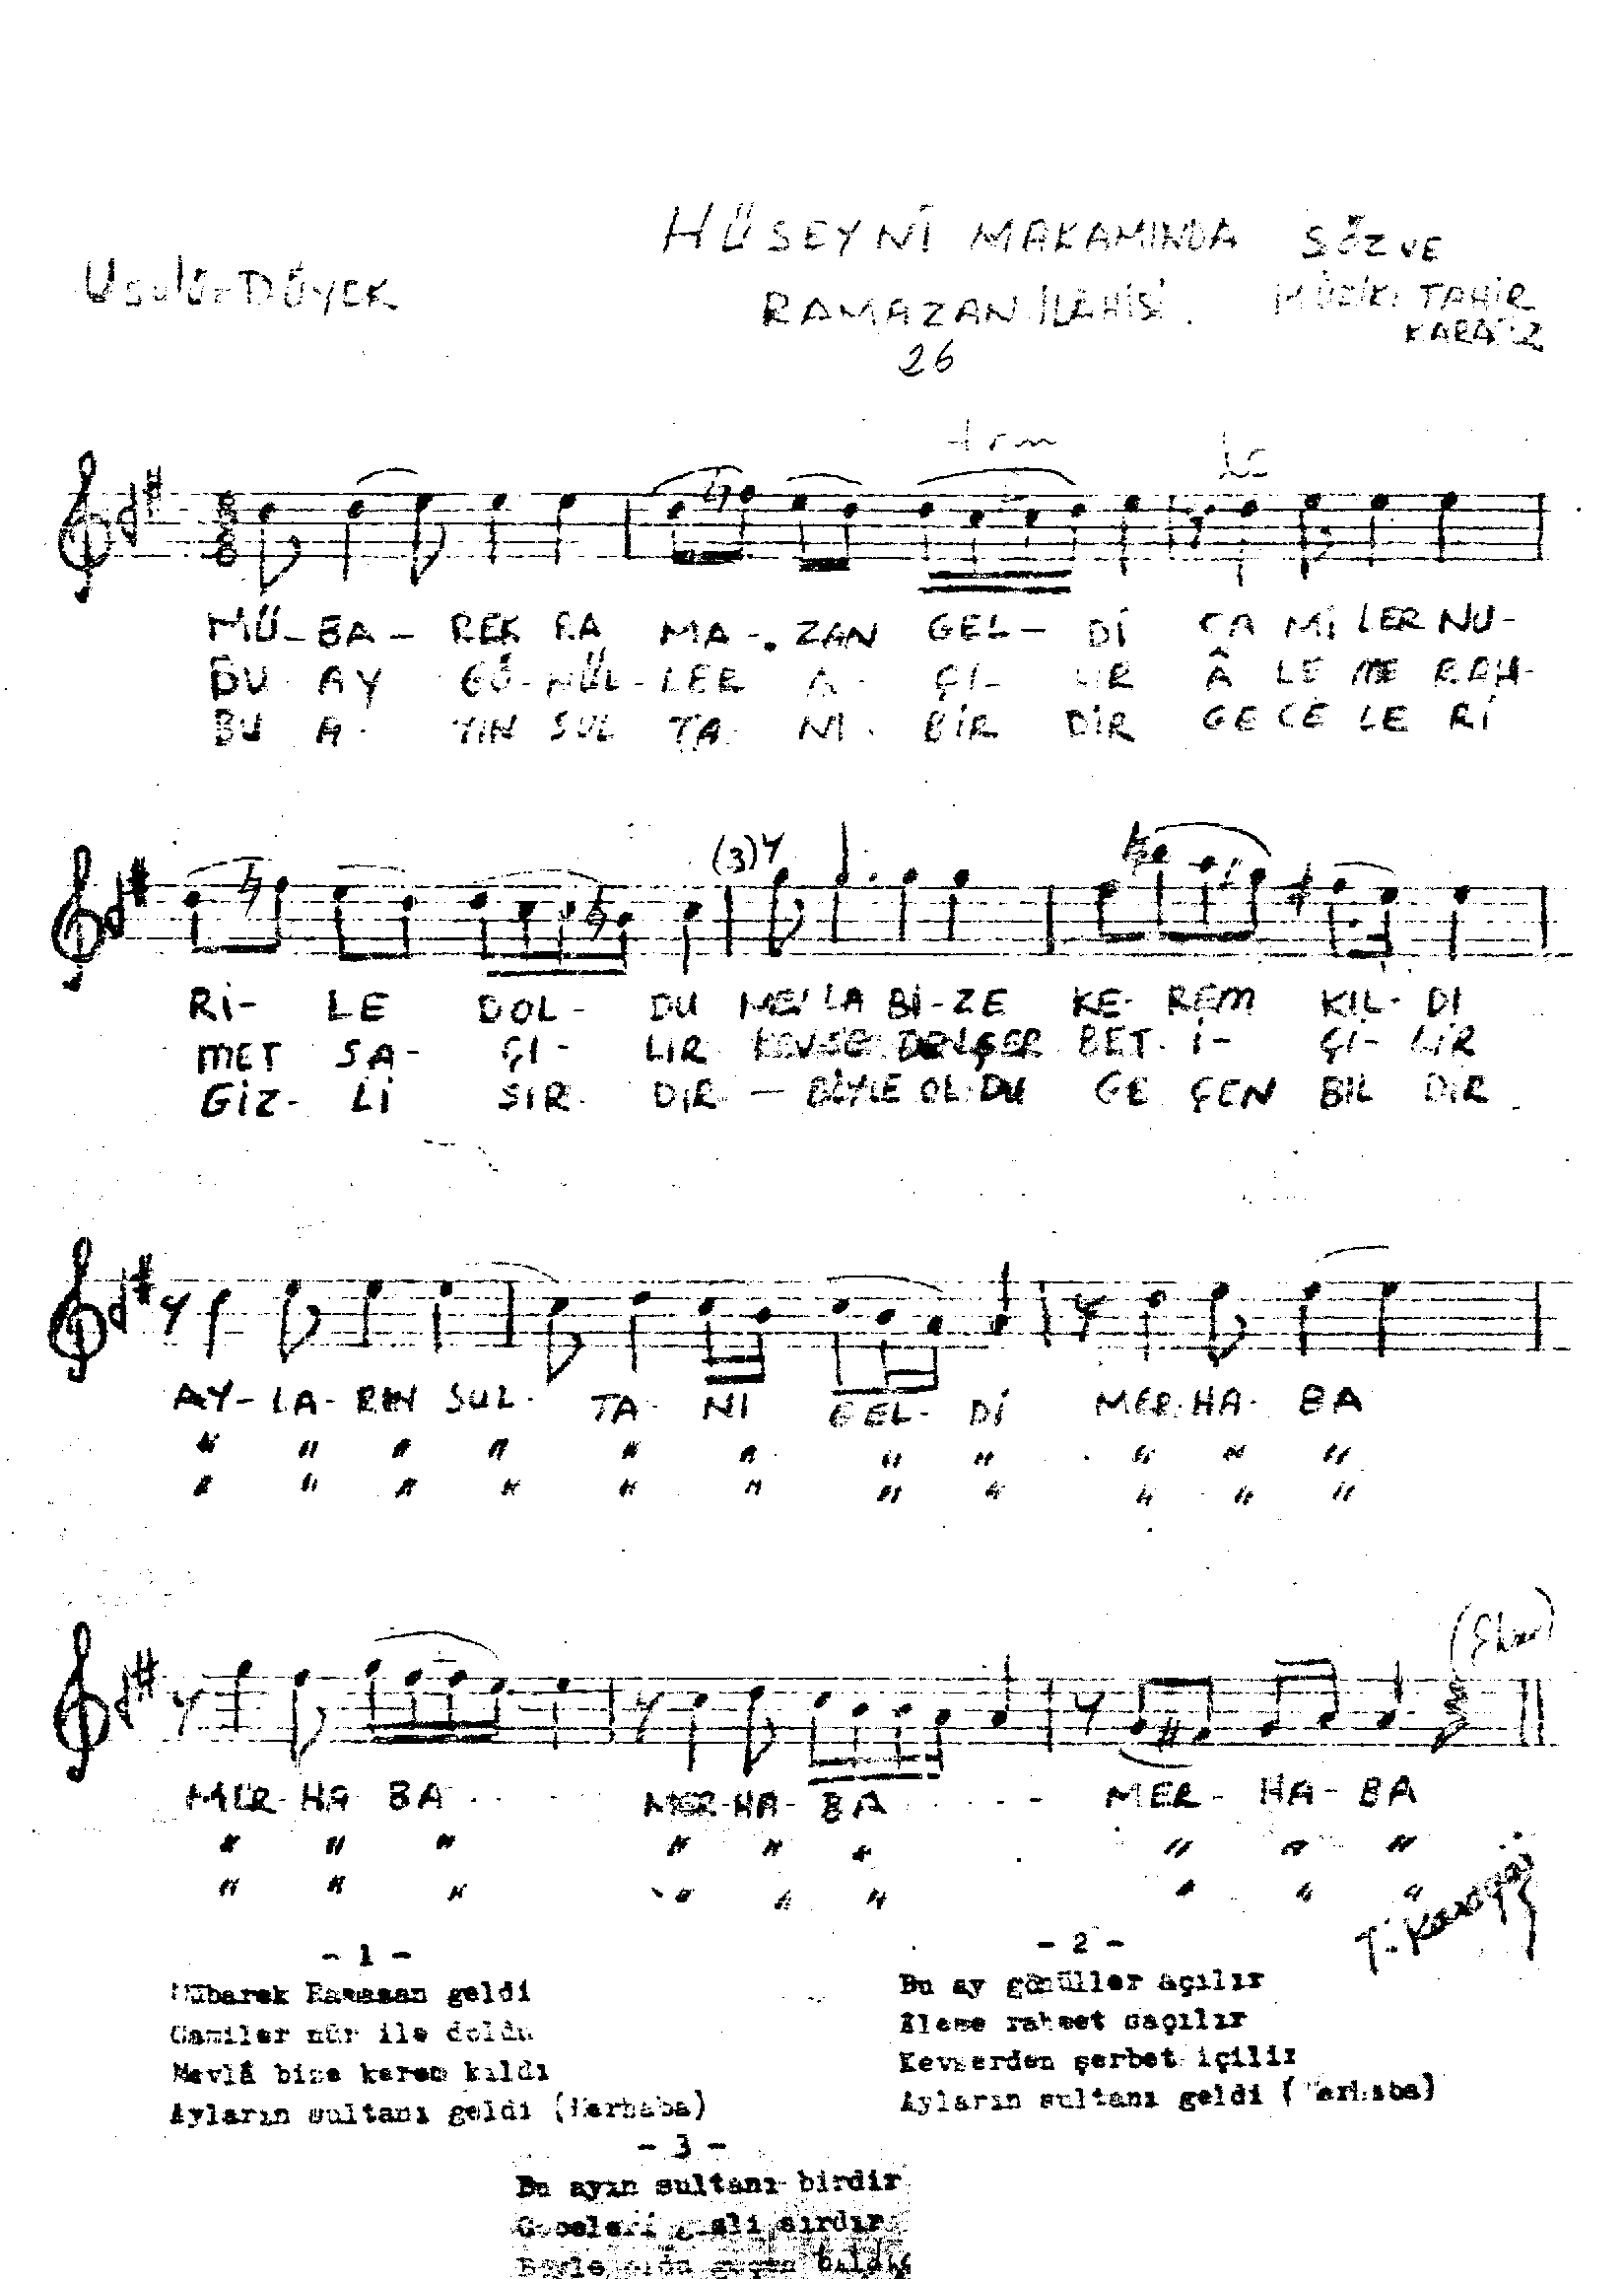 HÜSEYNİ MAKAMINDA
SÖZ VE
USULÜ: DÜYEK
RAMAZAN İLÂHİSİ.
MÜZİK: TAHİR
26
MÜ-BA-REK RA MA-ZAN GEL-Dİ CA Mİ LER NU-
BU AY GÖ-NÜL-LER A-ÇI-LIR Â LE ME RAH-
BU A-YIN SUL TA-NI BİR DİR GE CE LE Rİ
(3)
Rİ-LE DOL-DU MEV LA Bİ-ZE KE-REM KIL-DI
MET SA-ÇI-LIR KEVSER DEN ŞER BET-İ-Çİ-LİR
GİZ-Lİ SIR-DIR-BÖYLE OL-DU GE ÇEN BIL DIR
AY-LA-RIN SUL-TA-NI GEL-Dİ MER-HA-BA
" " " " " " " " " " "
" " " " " " " " " " "
MER-HA BA MER-HA-BA MER-HA-BA
" " " " " " " " "
" " " " " " " " "
- 1 -
Mübarek Ramazan geldi
Camiler nûr ile doldu
Mevlâ bize kerem kıldı
Ayların sultanı geldi (Merhaba)
- 2 -
Bu ay gönüller açılır
Aleme rahmet saçılır
Kevserden şerbet içilir
Ayların sultanı geldi (Merhaba)
- 3 -
Bu ayın sultanı birdir
Geceleri gizli sırdır
Böyle oldu geçen bıldır